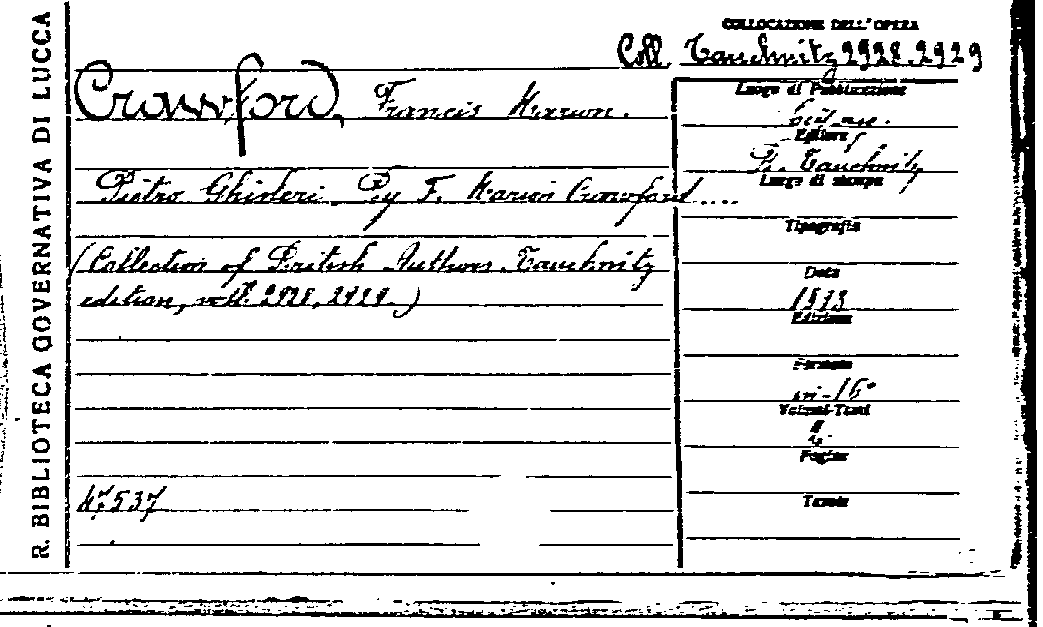 R. BIBLIOTECA GOVERNATIVA DI LUCCA
COLLOCAZIONE DELL'OPERA
Coll. Tauchnitz 2928.2929
Crawford, Francis Marion.
Pietro Ghisleri. By F. Marion Crawford....
(Collection of British Authors. Tauchnitz
edition, voll. 2928, 2929.)
47537
Luogo di Pubblicazione
Editore
B. Tauchnitz
Luogo di stampa
Tipografia
Data
1893
Edizione
Formato
in-16°
Volumi-Tomi
Pagine
Tavole